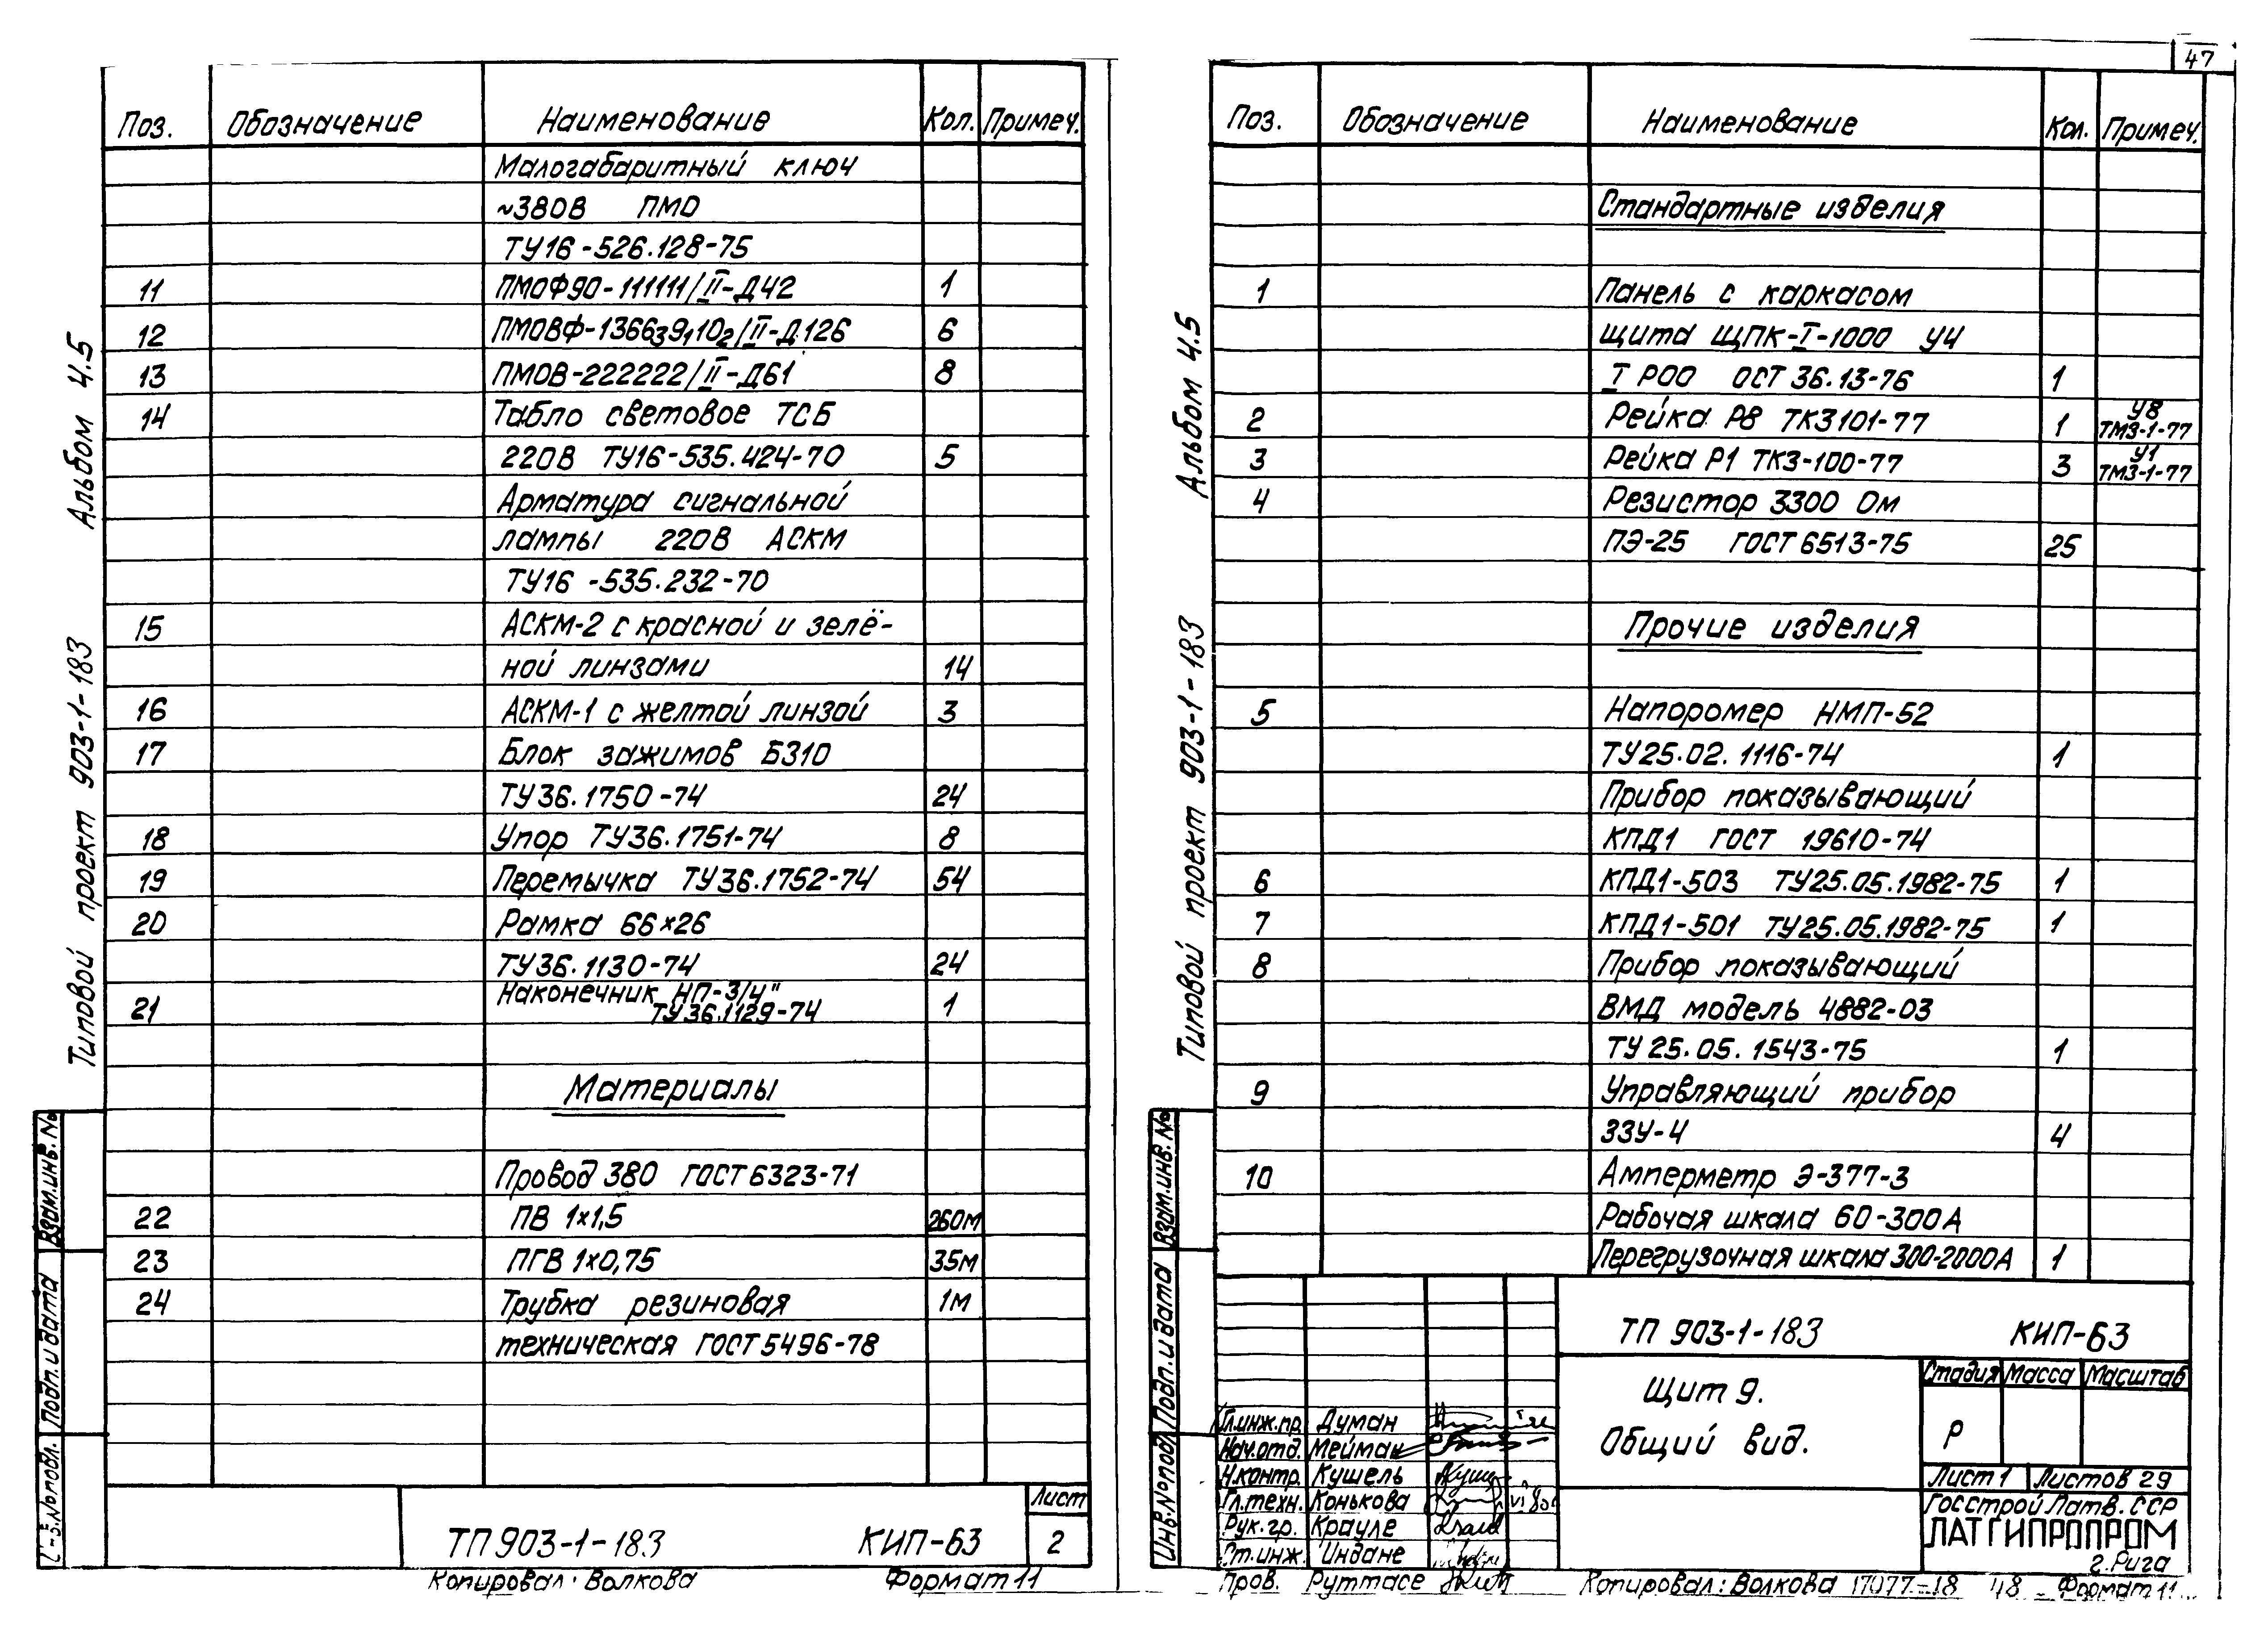 Поз. Обозначение Наименование Кол. Примеч.
Малогабаритный ключ
~380В ПМО
ТУ16-526.128-75
11 ПМОФ90-111111/II-Д42 1
12 ПМОВФ-1366₃9₁10₂/II-Д126 6
13 ПМОВ-222222/II-Д61 8
14 Табло световое ТСБ
220В ТУ16-535.424-70 5
Арматура сигнальной
лампы 220В АСКМ
ТУ16-535.232-70
15 АСКМ-2 с красной и зелё-
ной линзами 14
16 АСКМ-1 с желтой линзой 3
17 Блок зажимов БЗ10
ТУ36.1750-74 24
18 Упор ТУ36.1751-74 8
19 Перемычка ТУ36.1752-74 54
20 Рамка 66×26
ТУ36.1130-74 24
21 Наконечник НП-3/4" 1
ТУ36.1129-74
Материалы
Провод 380 ГОСТ 6323-71
22 ПВ 1×1,5 260м
23 ПГВ 1×0,75 35м
24 Трубка резиновая 1м
техническая ГОСТ 5496-78
ТП 903-1-183 КИП-63
Лист
2
Копировал: Волкова Формат 11
Альбом 4.5
Типовой проект 903-1-183
Взам.инв. №
Подп. и дата
№ подл.
47
Поз. Обозначение Наименование Кол. Примеч.
Стандартные изделия
1 Панель с каркасом
щита ЩПК-I-1000 У4
I Р00 ОСТ 36.13-76 1
2 Рейка Р8 ТК3101-77 1 У8 ТМ3-1-77
3 Рейка Р1 ТК3-100-77 3 У1 ТМ3-1-77
4 Резистор 3300 Ом
ПЭ-25 ГОСТ 6513-75 25
Прочие изделия
5 Напоромер НМП-52
ТУ25.02.1116-74 1
Прибор показывающий
КПД1 ГОСТ 19610-74
6 КПД1-503 ТУ25.05.1982-75 1
7 КПД1-501 ТУ25.05.1982-75 1
8 Прибор показывающий
ВМД модель 4882-03
ТУ 25.05.1543-75 1
9 Управляющий прибор
ЗЗУ-4 4
10 Амперметр Э-377-3
Рабочая шкала 60-300А
Перегрузочная шкала 300-2000А 1
ТП 903-1-183 КИП-63
Щит 9.
Общий вид.
Стадия Масса Масштаб
Р
Лист 1 Листов 29
Госстрой Латв. ССР
ЛАТГИПРОПРОМ
г. Рига
Гл.инж.пр. Думан
Нач.отд. Мейман
Н.контр. Кушель
Гл.техн. Конькова
Рук.гр. Крауле
Ст.инж. Индане
Пров. Руттасе
Копировал: Волкова 17077-18 48 Формат 11
Альбом 4.5
Типовой проект 903-1-183
Взам.инв. №
Подп. и дата
Инв.№подл